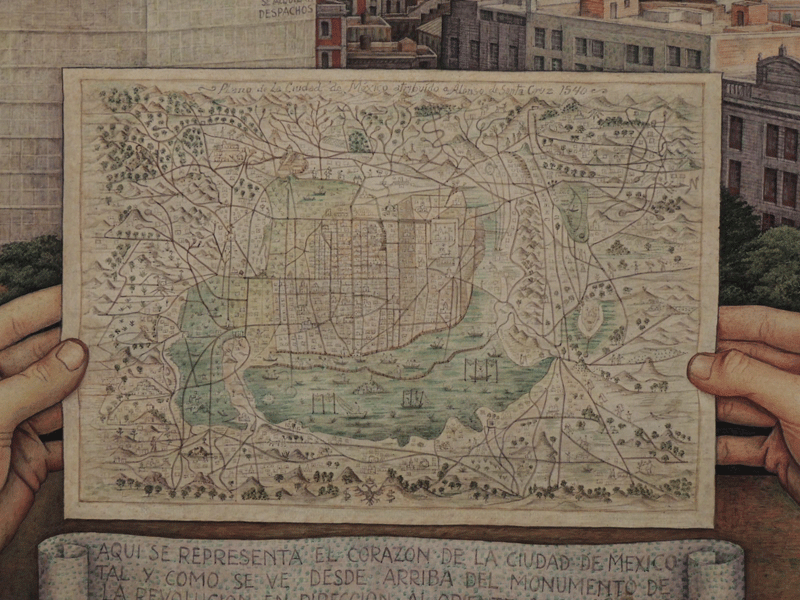 SE ALQUILA
DESPACHOS
Plano de la Ciudad de México atribuido a Alonso de Santa Cruz 1540
N
AQUI SE REPRESENTA EL CORAZON DE LA CIUDAD DE MEXICO
TAL Y COMO SE VE DESDE ARRIBA DEL MONUMENTO DE
LA REVOLUCION EN DIRECCION AL ORIENTE